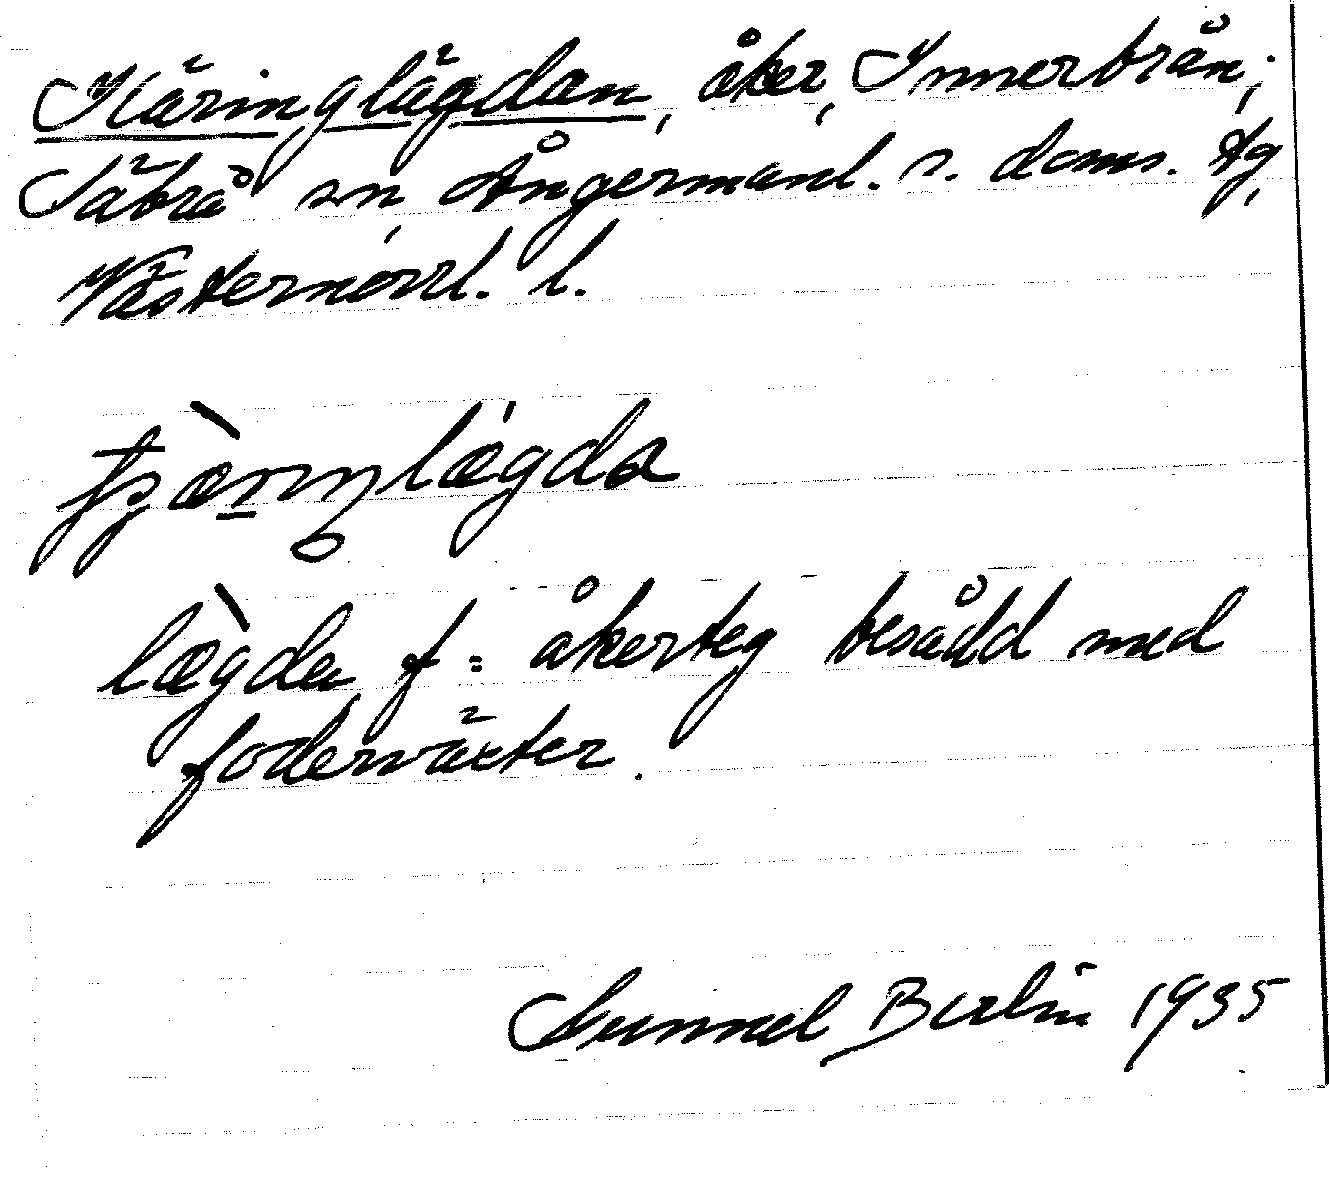 Käringlägdan, åker, Innerbrån,
Säbrå sn, Ångermanl. s. doms. tg,
Västernorrl. l.
lægda f = åkerteg besådd med
foderväxter.
Gunnel Berlin 1935